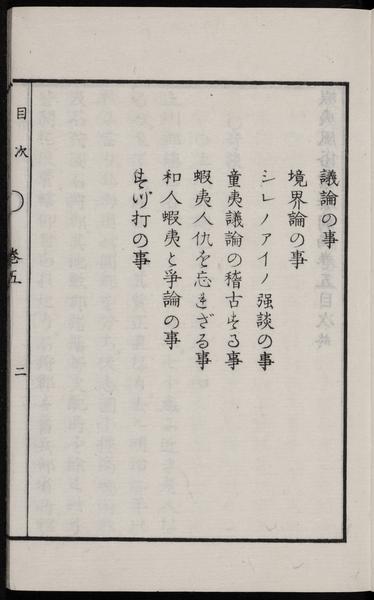 議論の事
境界論の事
シレノアイノ强談の事
童夷議論の稽古する事
蝦夷人仇を忘れざる事
和人蝦夷と爭論の事
打の事
目次
卷五
二